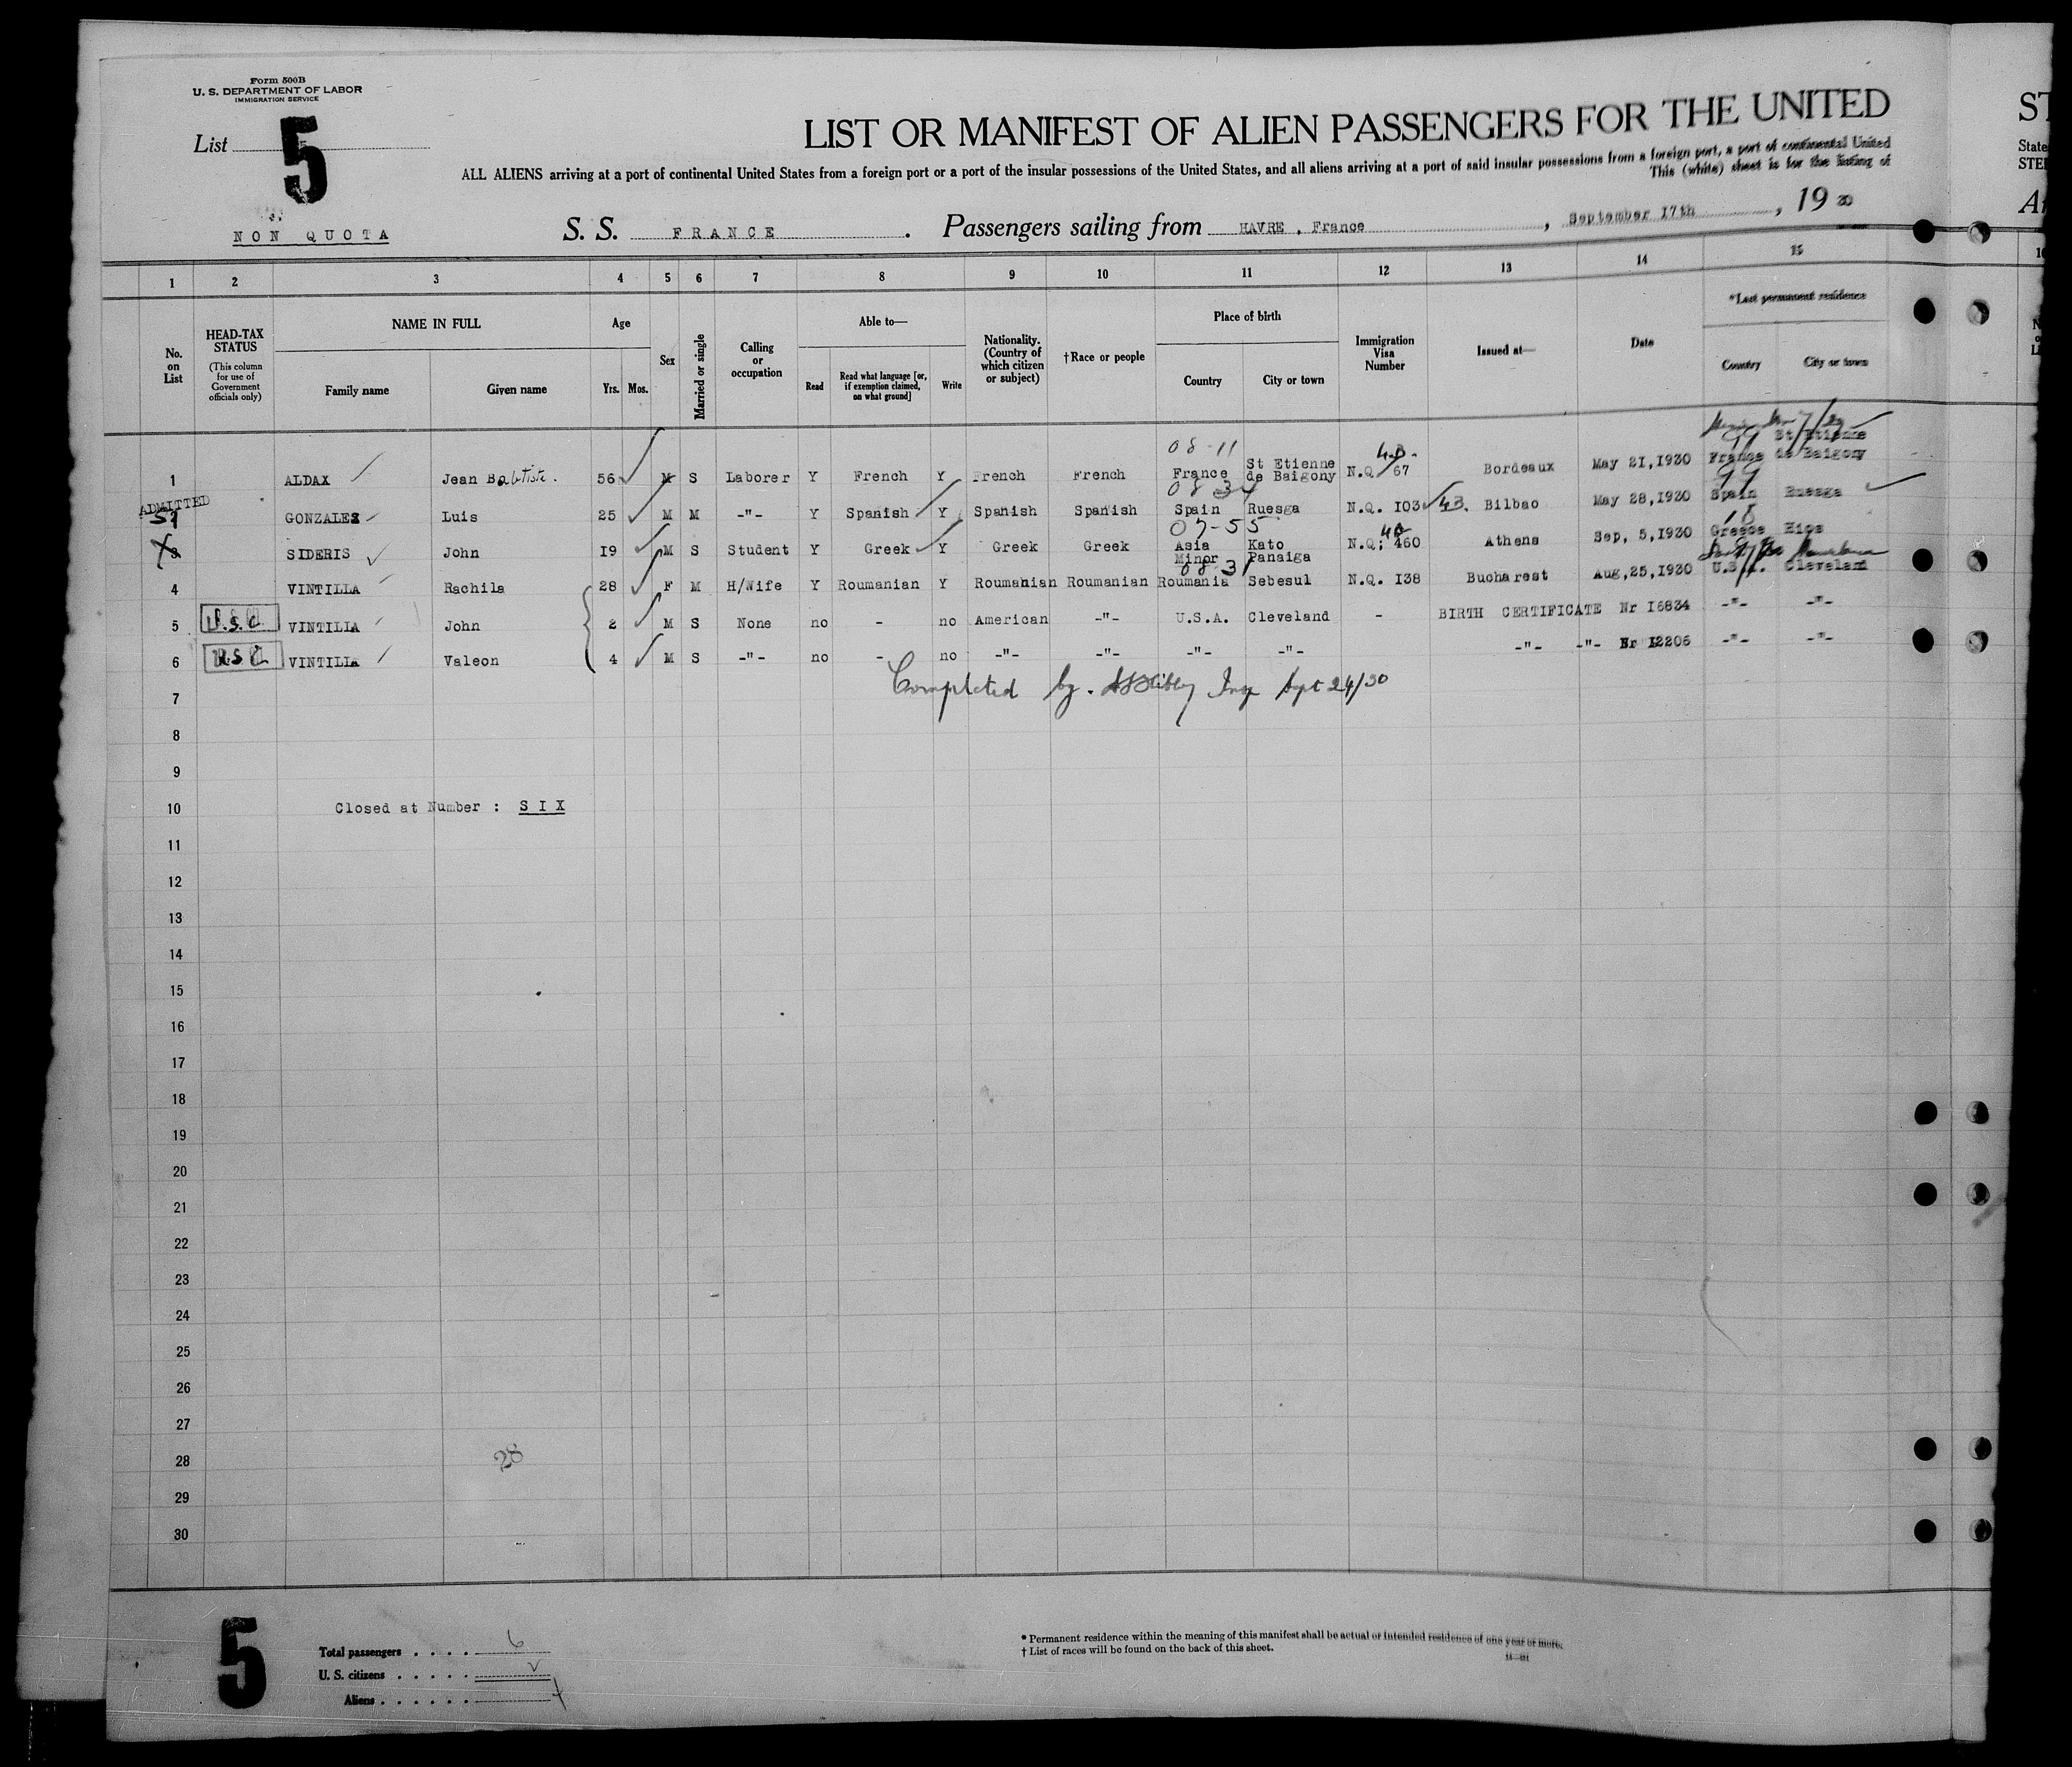 Form 500B
U. S. DEPARTMENT OF LABOR
IMMIGRATION SERVICE
List 5
LIST OR MANIFEST OF ALIEN PASSENGERS FOR THE UNITED
ST
ALL ALIENS arriving at a port of continental United States from a foreign port or a port of the insular possessions of the United States, and all aliens arriving at a port of said insular possessions from a foreign port, a port of continental United
State
This (white) sheet is for the listing of
STE
NON QUOTA
S. S. FRANCE . Passengers sailing from HAVRE , France , September 17th , 19 30
1 2 3 4 5 6 7 8 9 10 11 12 13 14 15
No. on List
HEAD-TAX STATUS
(This column for use of Government officials only)
NAME IN FULL
Family name Given name
Age
Yrs. Mos.
Sex
Married or single
Calling or occupation
Able to—
Read
Read what language [or, if exemption claimed, on what ground]
Write
Nationality. (Country of which citizen or subject)
†Race or people
Place of birth
Country City or town
Immigration Visa Number
Issued at—
Date
*Last permanent residence
Country City or town
08-11
1 ALDAX Jean Babtiste. 56 M S Laborer Y French Y French French France St Etienne de Baigony N.Q. 67 Bordeaux May 21,1930 France St Etienne de Baigony
ADMITTED
08 34
GONZALES Luis 25 M M -"- Y Spanish Y Spanish Spanish Spain Ruesga N.Q. I03 43. Bilbao May 28,1930 Spain Ruesga
07-55
3 SIDERIS John I9 M S Student Y Greek Y Greek Greek Asia Minor Kato Panaiga N.Q: 460 Athens Sep, 5,1930 Greece
08-31
4 VINTILLA Rachila 28 F M H/Wife Y Roumanian Y Roumanian Roumanian Roumania Sebesul N.Q. I38 Bucharest Aug,25,1930 U.S.A. Cleveland
5 U.S.C. VINTILIA John 2 M S None no - no American -"- U.S.A. Cleveland - BIRTH CERTIFICATE Nr I6834 -"- -"-
6 U.S.C. VINTILLA Valeon 4 M S -"- no - no -"- -"- -"- -"- -"- -"- Nr I2206 -"- -"-
Completed by Insp Sept 24/30
7
8
9
10 Closed at Number : SIX
11
12
13
14
15
16
17
18
19
20
21
22
23
24
25
26
27
28
28
29
30
5
Total passengers . . . . 6
U. S. citizens . . . . .
Aliens . . . . . . 4
* Permanent residence within the meaning of this manifest shall be actual or intended residence of one year or more.
† List of races will be found on the back of this sheet.